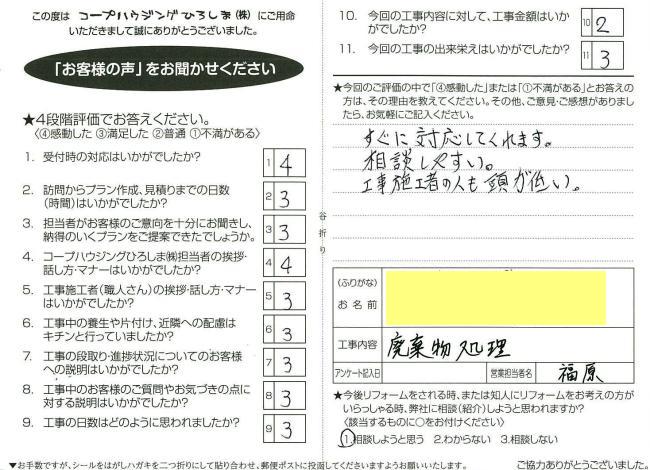 この度は コープハウジングひろしま(株) にご用命
いただきまして誠にありがとうございました。
「お客様の声」をお聞かせください
★4段階評価でお答えください。
〈④感動した ③満足した ②普通 ①不満がある〉
1. 受付時の対応はいかがでしたか? 1 4
2. 訪問からプラン作成、見積りまでの日数
(時間)はいかがでしたか? 2 3
3. 担当者がお客様のご意向を十分にお聞きし、
納得のいくプランをご提案できたでしょうか。 3 3
4. コープハウジングひろしま㈱担当者の挨拶・
話し方・マナーはいかがでしたか? 4 4
5. 工事施工者(職人さん)の挨拶・話し方・マナー
はいかがでしたか? 5 3
6. 工事中の養生や片付け、近隣への配慮は
キチンと行っていましたか? 6 3
7. 工事の段取り・進捗状況についてのお客様
への説明はいかがでしたか? 7 3
8. 工事中のお客様のご質問やお気づきの点に
対する説明はいかがでしたか? 8 3
9. 工事の日数はどのように思われましたか? 9 3
▼お手数ですが、シールをはがしハガキを二つ折りにして貼り合わせ、郵便ポストに投函してくださいますようお願いいたします。
谷折り
10. 今回の工事内容に対して、工事金額はいか
がでしたか? 10 2
11. 今回の工事の出来栄えはいかがでしたか? 11 3
★今回のご評価の中で「④感動した」または「①不満がある」とお答えの
方は、その理由を教えてください。その他、ご意見・ご感想がありまし
たら、お気軽にご記入ください。
すぐに対応してくれます。
相談しやすい。
工事施工者の人も頭が低い。
(ふりがな)
お名前
工事内容 廃棄物処理
アンケート記入日 営業担当者名 福原
★今後リフォームをされる時、または知人にリフォームをお考えの方が
いらっしゃる時、弊社に相談(紹介)しようと思われますか?
〈該当するものに○をお付けください〉
1.相談しようと思う 2.わからない 3.相談しない
ご協力ありがとうございました。